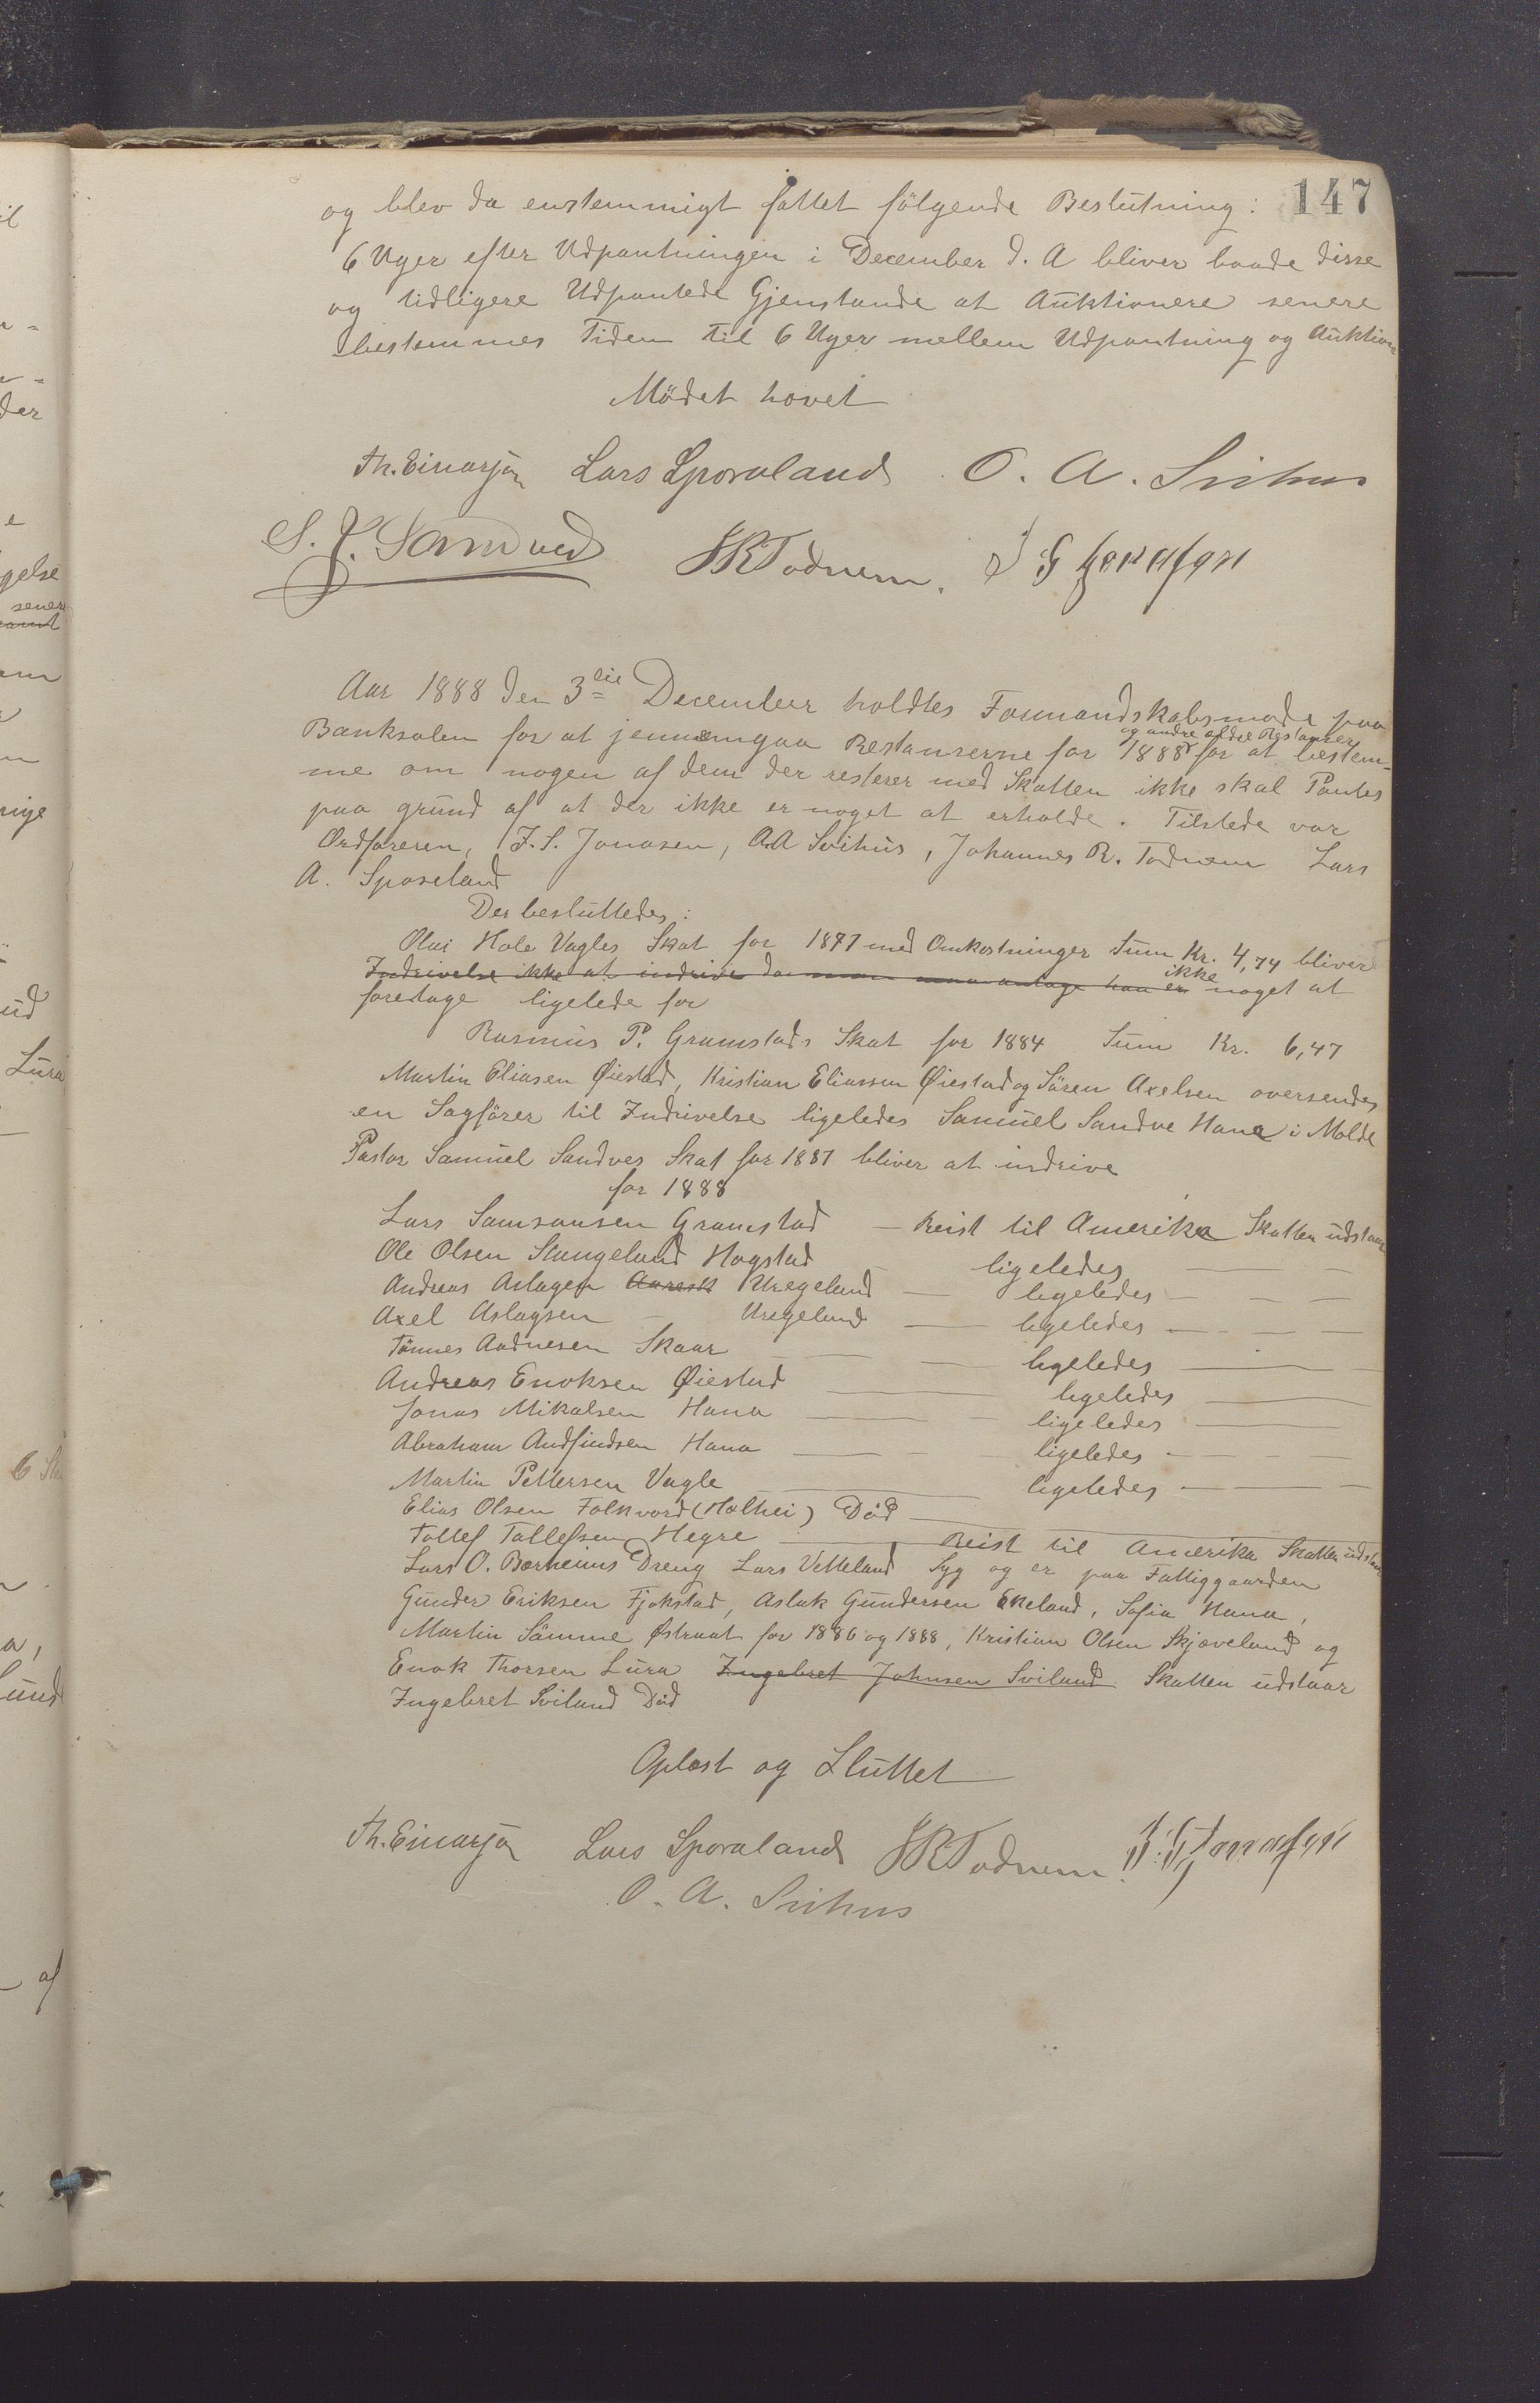 147
og blev da enstemmigt fattet følgende Beslutning:
6 Uger efter Udpantningen i December d. A bliver baade disse
og tidligere Udpantede Gjenstande at Auktionere senere
bestemmes Tiden til 6 Uger mellem Udpantning og Auktion
Mödet hævet
Th. Einarsen Lars Sporaland O. A. Svihus
S. J. Sandved JRTodnem.
Aar 1888 den 3die December holdtes Formandskabsmøde paa
og andre ældre Restanser
Banksalen for at jennemgaa Restanserne for 1888 for at bestem-
me om nogen af dem der resterer med Skatten ikke skal Pantes
paa grund af at der ikke er noget at erholde. Tilstede var
Ordføreren, J. S. Jonasen, O.A Svihus, Johannes R. Todnem Lars
A. Sporeland
Der besluttedes:
Olai Hole Vagles Skat for 1887 med Omkostninger Sum Kr. 4,74 bliver
Indrivelse ikke at indrive da man maa antage han er ikke noget at
foretage ligelede for
Rasmus P. Gramstads Skat for 1884 Sum Kr. 6,47
Martin Eliasen Øiestad, Kristian Eliassen Øiestad og Sören Axelsen oversendes
en Sagförer til Indrivelse ligeledes Samuel Sandve Hana i Molde
Pastor Samuel Sandves Skat for 1887 bliver at indrive
for 1888
Lars Samsonsen Gramstad — Reist til Amerika Skatten udstaar
Ole Olsen Stangeland Hogstad — ligeledes — —
Andreas Aslagen Auresk Uregeland — ligeledes — — —
Axel Aslagsen — Uregeland — ligeledes — — —
Tönnes Aadnesen Skaar — — ligeledes — —
Andreas Enoksen Øiestad — — ligeledes —
Jonas Mikalsen Hana — — ligeledes — —
Abraham Andfindsen Hana — — ligeledes — — —
Martin Pettersen Vagle — ligeledes — — —
Elias Olsen Folkvord (Holhei) Död —
Tollef Tollefsen Hegre — Reist til Amerika Skatten udstaar
Lars O. Bærheims Dreng Lars Vetteland Syg og er paa Fattiggaarden
Gunder Eriksen Fjokstad, Aslak Gundersen Ekeland, Sofia Hana,
Martin Sömme Østraat for 1886 og 1888, Kristian Olsen Skjæveland og
Enok Thorsen Lura Ingebret Johnsen Sviland Skatten udstaar
Ingebret Sviland Död
Oplæst og Sluttet
Th. Einarsen Lars Sporaland JRTodnem
O. A. Svihus